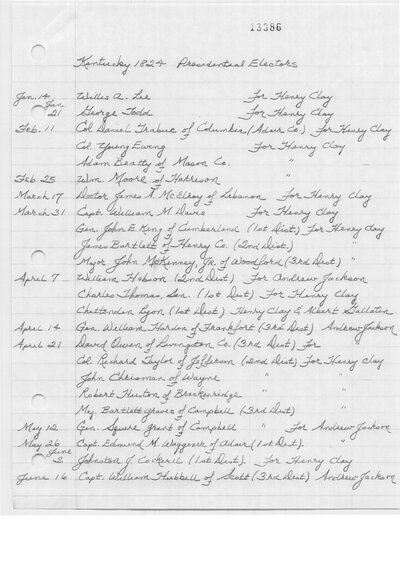 13086
Kentucky 1824 Presidential Electors
Jan. 14 Willis A. Lee For Henry Clay
Jan. 21 George Todd For Henry Clay
Feb. 11 Col. Daniel Trabue of Columbia, (Adair Co.) For Henry Clay
Col. Young Ewing For Henry Clay
Adam Beatty of Mason Co. "
Feb. 25 Wm. Moore of Harrison "
March 17 Doctor James A. McElroy of Lebanon For Henry Clay
March 31 Capt. William M. For Henry Clay
Gen. John E. King of Cumberland (1st Dist) For Henry Clay
James Bartlett of Henry Co. (2nd Dist.) "
Mayor John McKinney, Jr. of Woodford (3rd Dist) "
April 7 William Hobson (2nd Dist) For Andrew Jackson
Charles Thomas, Sen. (1st Dist) For Henry Clay
Chittenden Lyon (1st Dist) Henry Clay & Albert Gallaten
April 14 Gen. William Hardin of Frankfort (3rd Dist) Andrew Jackson
April 21 David Owen of Livingston Co. (3rd Dist) For
Col. Richard Taylor of Jefferson (2nd Dist) For Henry Clay
John Chrisman of Wayne " "
Robert Huston of Breckinridge " "
Maj. Bartlett Graves of Campbell (3rd Dist) "
May 12 Gen. Squire Grant of Campbell " For Andrew Jackson
May 26 Capt. Edmund M. Waggener of Adair (1st Dist). "
June 2 Johnston J. Cockerill (1st Dist). For Henry Clay
June 16 Capt. William Hubbell of Scott (3rd Dist) Andrew Jackson